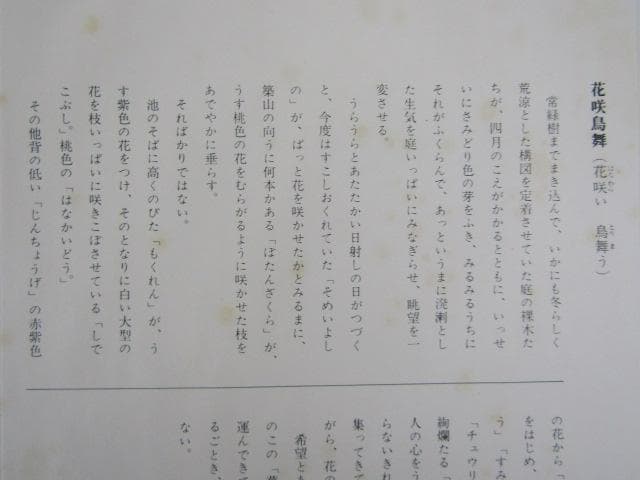 花咲鳥舞（花咲い　鳥舞う）
常緑樹までまき込んで、いかにも冬らしく
荒涼とした構図を定着させていた庭の裸木た
ちが、四月のこえがかかるとともに、いっせ
いにさみどり色の芽をふき、みるみるうちに
それがふくらんで、あっというまに溌溂とし
た生気を庭いっぱいにみなぎらせ、眺望を一
変させる。
うらうらとあたたかい日射しの日がつづく
と、今度はすこしおくれていた「そめいよし
の」が、ぱっと花を咲かせたかとみるまに、
築山の向うに何本かある「ぼたんざくら」が、
うす桃色の花をむらがるように咲かせた枝を
あでやかに垂らす。
そればかりではない。
池のそばに高くのびた「もくれん」が、う
す紫色の花をつけ、そのとなりに白い大型の
花を枝いっぱいに咲きこぼさせている「しで
こぶし」。桃色の「はなかいどう」。
その他背の低い「じんちょうげ」の赤紫色
の花から「
をはじめ、
う」「すみ
「チュウリ
絢爛たる「
人の心をう
らないきれ
集ってきて
がら、花の
希望とあ
のこの「
運んできて
るごとき、
ない。